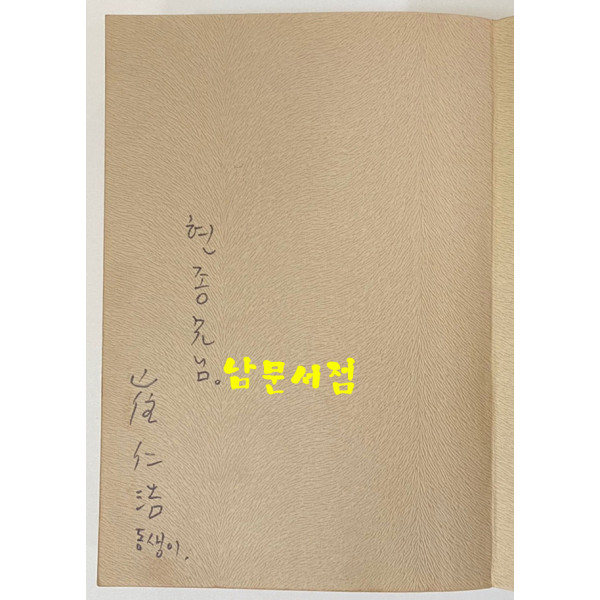 현종兄님。
崔仁浩
동생이.
남문서점